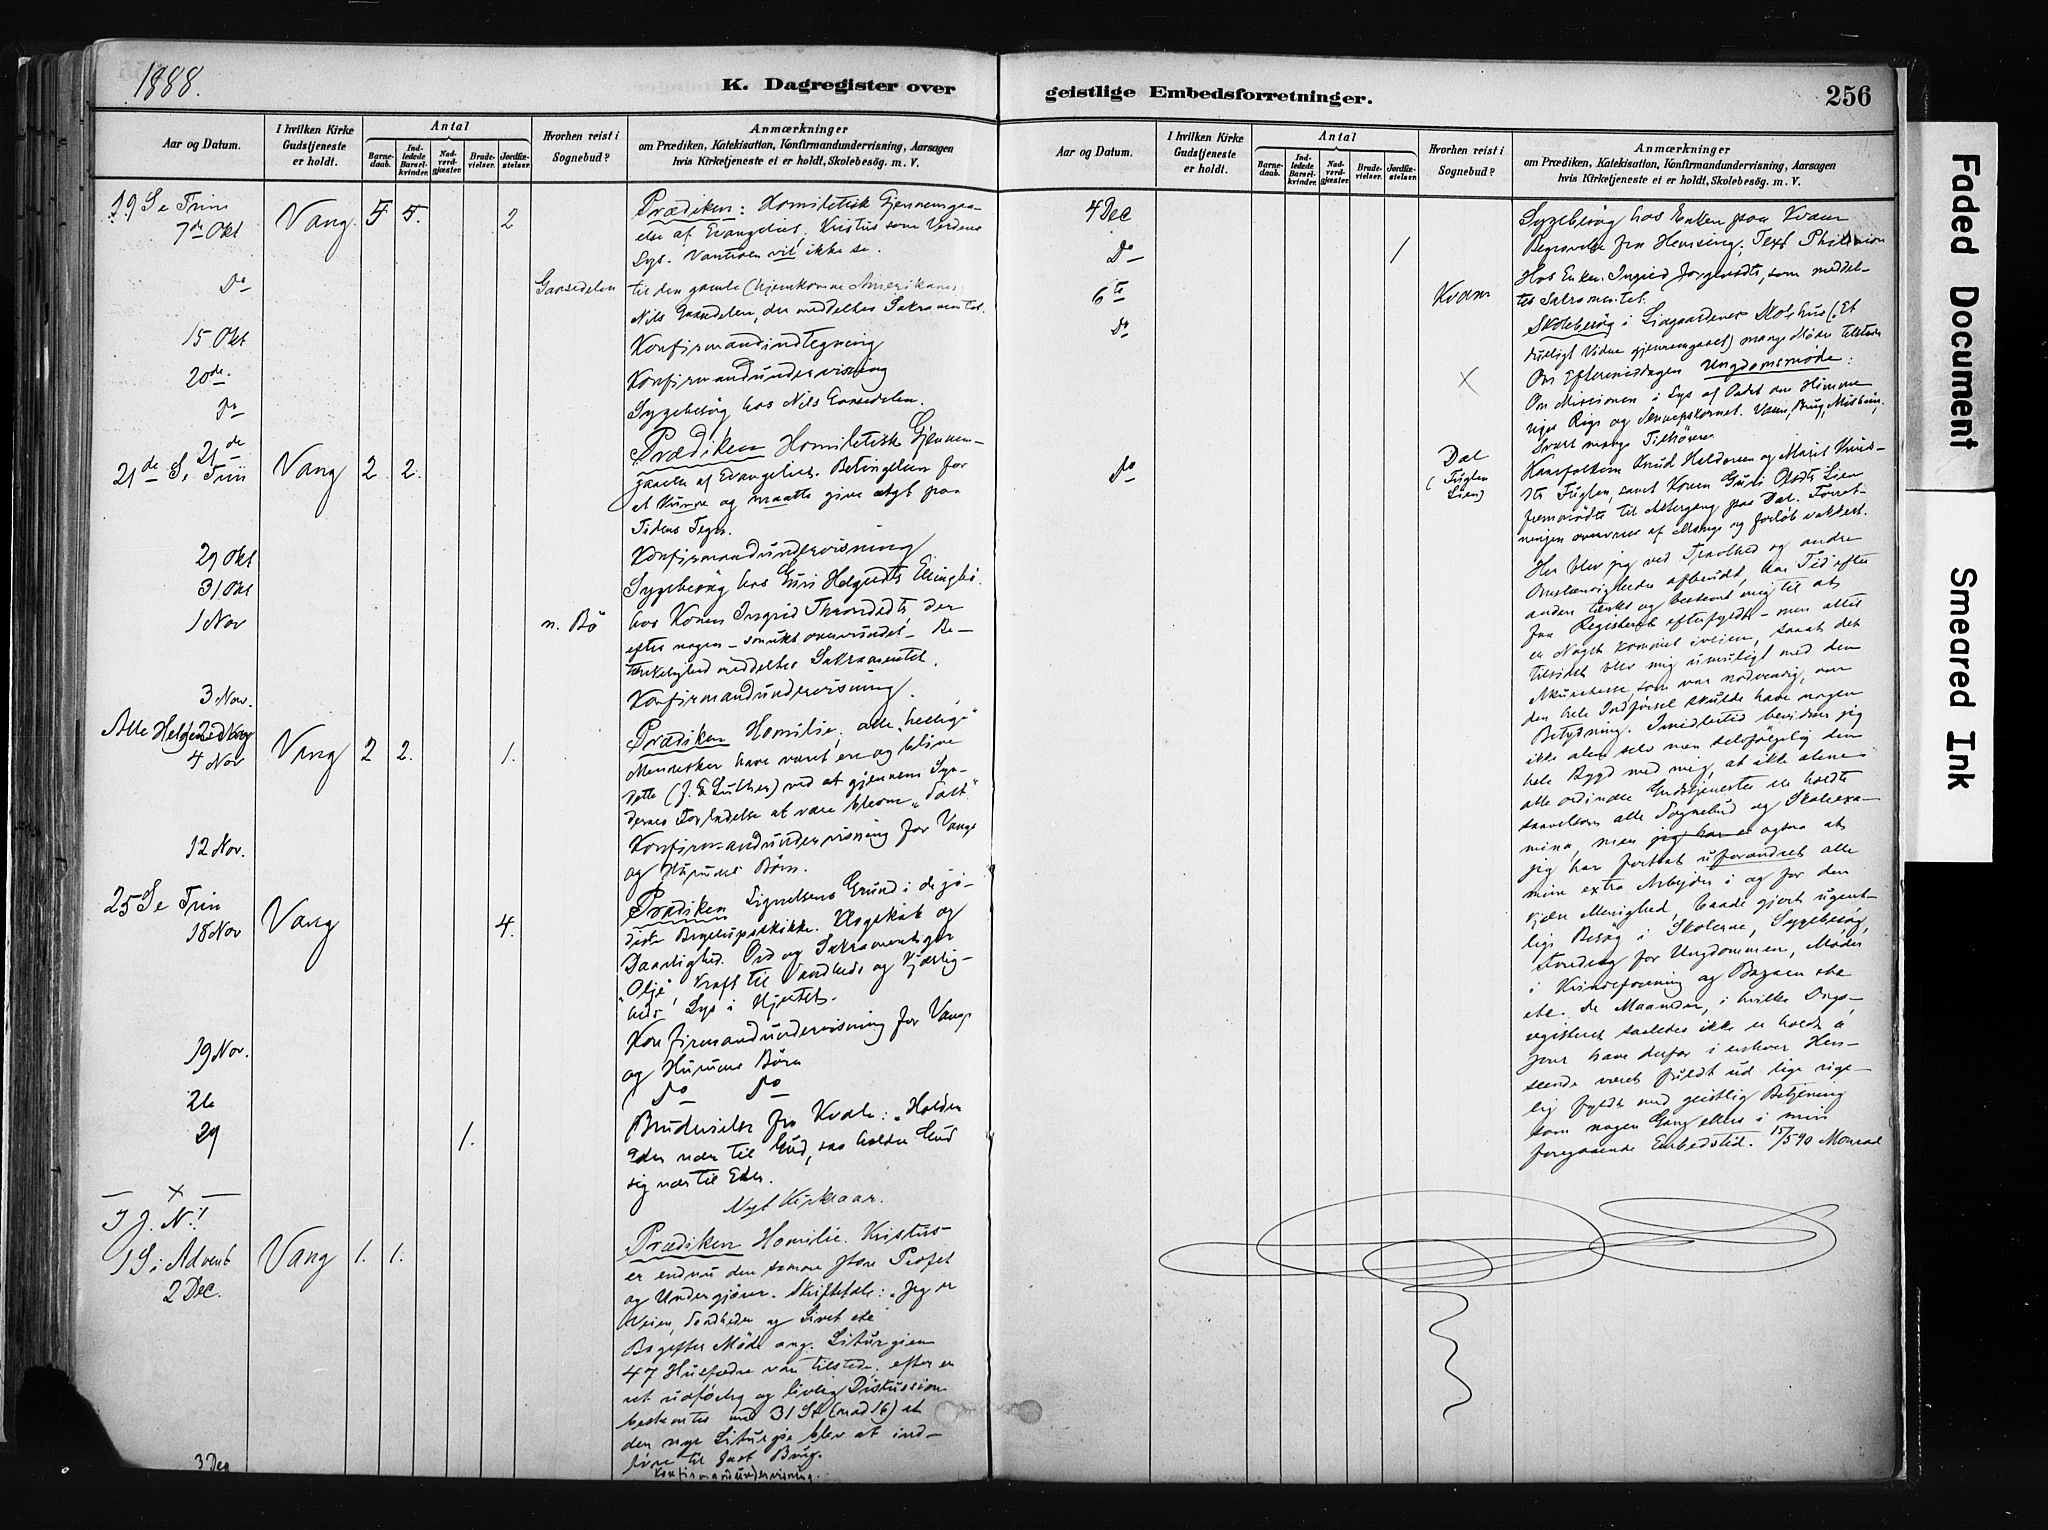 1888.
K. Dagregister over
geistlige Embedsforretninger.
256
Aar og Datum.
I hvilken Kirke Gudstjeneste er holdt.
Antal
Barnedaab.
Indledede Barselkvinder.
Nadverdgjæster.
Brudevielser.
Jordfæstelser.
Hvorhen reist i Sognebud?
Anmærkninger
om Prædiken, Katekisation, Konfirmandundervisning, Aarsagen
hvis Kirketjeneste ei er holdt, Skolebesög. m. V.
19 S e Trin
7de Okt Vang. 5 5. 2 Prædiken: Homiletisk Gjennemgaa-
else af Evangeliet. Kristus som Verdens
Lys. Vantroen vil ikke se.
Do Gaasedelen til den gamle (hjemkomne Amerikaner)
Nils Gaasedelen, der meddeltes Sakramentet.
15 Okt Konfirmandindtegning
20de Konfirmandundervisning
Do Sygebesög hos Nils Gaasedelen.
21de
21de S. Trin Vang 2 2. Prædiken Homiletisk Gjennem-
gaaelse af Evangeliet. Betingelsen for
at kunne og maatte give agt paa
Tidens Tegn.
29 Okt Konfirmandundervisning
31 Okt Sygebesög hos Guri Helgesdtr
1 Nov n. Bö hos Konen Ingrid der
efter nogen smukt overvundet Be-
tænkelighed meddeltes Sakramentet.
3 Nov. Konfirmandundervisning.
Alle Helgens Dag
4 Nov Vang 2 2. 1. Prædiken Homilie. alle "hellige"
Mennesker have været ere og blive
dette (J. E. Luther) ved at gjennem Syn-
dernes Forladelse at være bleven "Salt".
12 Nov. Konfirmandundervisning for Vangs
og Hurums Börn.
25 S e Trin
18 Nov Vang 4. Prædiken Lignelsens Grund i de jö-
diske Bryllupsskikke. Klogskab og
Daarlighed. Ord og Sakramenter gir
"Olje", Kraft til Sandheds og Kjærlig-
heds Lys i Hjertet.
19 Nov. Konfirmandundervisning for Vangs
og Hurums Börn
26 Do Do
29 1. Brudevielse fra Kvale: "Holder
eder nær til Gud, saa holder Gud
sig nær til Eder.
— x — Nyt Kirkeaar.
I J. N.!
1 S i Advent Vang 1. 1. Prædiken Homilie. Kristus
2 Dec. er endnu den samme store Profet
og Undergjörer. Skriftetale: "Jeg er
Veien, Sandheden og Livet etc
Bagefter Möde ang. Liturgien
47 Husfædre var tilstede. efter en
ret udförlig og livlig Diskussion
bestemtes med 31 St (mod 16) at
den nye Liturgie blev at ind-
före til fast Brug.
3 Dec Konfirmandundervisning.
Aar og Datum.
I hvilken Kirke Gudstjeneste er holdt.
Antal
Barnedaab.
Indledede Barselkvinder.
Nadverdgjæster.
Brudevielser.
Jordfæstelser.
Hvorhen reist i Sognebud?
Anmærkninger
om Prædiken, Katekisation, Konfirmandundervisning, Aarsagen
hvis Kirketjeneste ei er holdt, Skolebesög. m. V.
4 Dec Sygebesög hos Enken paa Kvam
Do 1 Begravelse fra Hemsing. Text
6te Kvam Hos Enken Ingrid som meddel-
tes Sakramentet.
Do Skolebesög i Lidgaardenes Skolehus (Et
gjennemgaaet) mange Mödre tilstede
X Om Eftermiddagen Ungdomsmöde:
Om Missionen i Lys af Ordet om Himme-
riges Rige og Sennepskornet.
Svært mange Tilhörere
Do Dal (Fuglen Lien) Husfolkene Knud Haldorsen og Marit Knuds-
dtr Fuglen, samt Konen Guri Lien
fremmödte til Altergang paa Dal. Forret-
ningen overvær af Mange og forlöb vakkert.
Her blev jeg ved Travlhed og andre
Omstændigheder afbrudt, har Tid efter
anden tænkt og bestemt mig til at
faa Registeret efterfyldt – men altid
er Noget kommet iveien, saaat det
tilsidst blev mig umuligt med den
Akuratesse, som var nödvendig, om
den hele Indförsel skulde have nogen
Betydning. Imidlertid bevidner jeg
ikke alene selv men selvfölgelig den
hele Bygd med mig, at ikke alene
alle ordinære Gudstjenester ere holdte
saavelsom alle Sognebud og Skoleexa-
mina, men jeg har o ogsaa at
jeg har fortsat uforandret alle
mine extra Arbeider i og for den
kjære Menighed, baade gjort ugent-
lige Besög i Skolerne, Sygebesög,
Foredrag for Ungdommen, Möder
i Kvindeforening og Bazaren etc
etc. De Maaneder, i hvilke Dags-
registeret saaledes ikke er holdt à
jour have derfor i enhver Hen-
seende været fuldt ud lige rige-
lig fyldt med geistlig Betjening
som nogen Gang ellers i min
foregaaende Embedstid. 15/5 90 Monrad
Faded Document
Smeared Ink